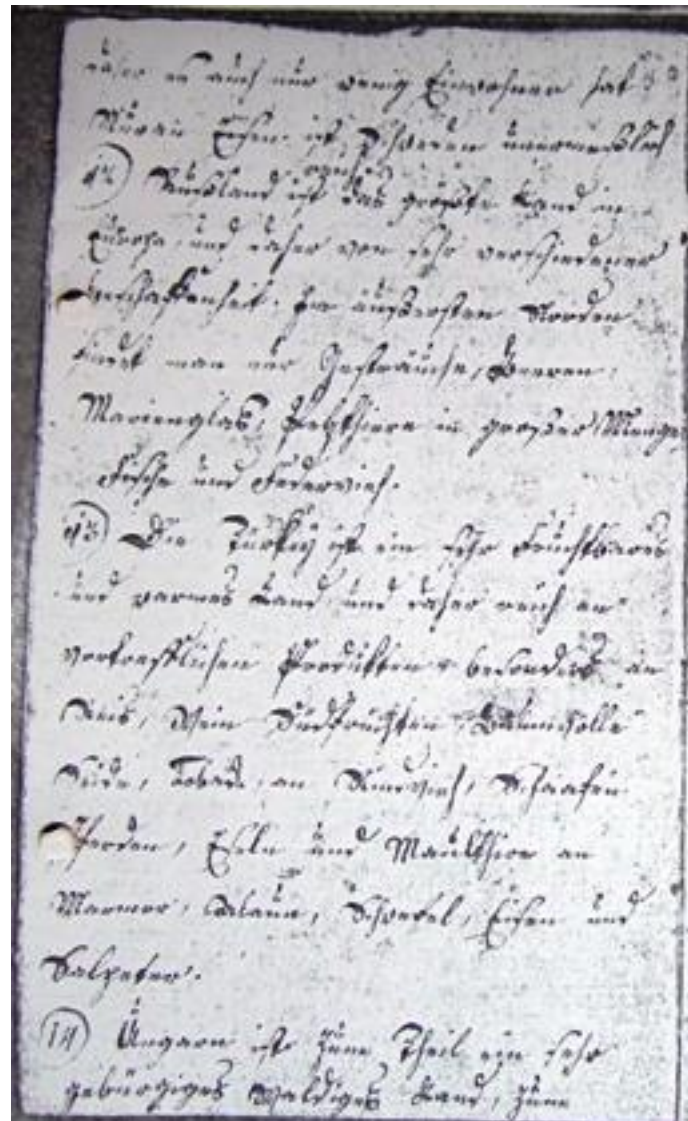 daher es auch nur wenig Einwohner hat
Nur an Eisen ist Schweden unermeßlich
reich
12) Russland ist das größte Land in
Europa, und daher von sehr verschiedener
Beschaffenheit. Im äußersten Norden
findet man nur Gesträuche, Beeren,
Marienglas, Pelzthiere in großer Menge
Fische und Federvieh.
13) Die Türkey ist ein sehr fruchtbares
und warmes Land und daher reich an
vortrefflichen Produkten besonders an
Reis, Wein Südfrüchten, Baumwolle
Seide, Toback, an Rindvieh, Schaafen
Pferden, Eseln und Maulthier an
Marmor, Alaun, Schwefel, Eisen und
Salpeter.
14) Ungarn ist zum Theil ein sehr
gebürgiges waldiges Land, zum